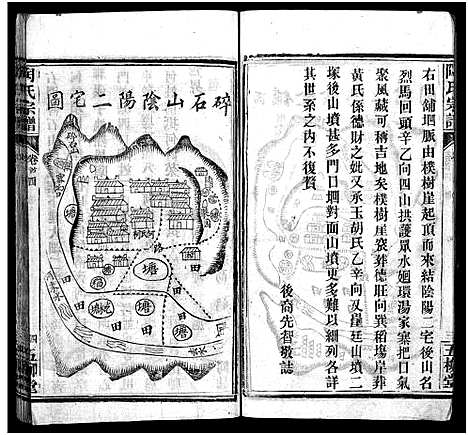 陶氏宗譜
右田舖垇脈由樸樹崖起頂而來結陰陽二宅後山名
烈馬回頭辛乙向四山拱護眾水廻環湯家寨把口氣
聚風藏可稱吉地矣樸樹崖𦵏德旺向巽稻塲崖𦵏
黃氏係德財之妣又承玉胡氏乙辛向又崖廷山墳二
塚後山墳甚多門口垇對面山墳更多難以細列各詳
其世系之內不復贅
後裔先智敬誌
五柳堂
碎石山陰陽二宅圖
塘
塘
塘
塘
田
田
田
田
田
田
陶氏宗譜
卷首
四
五柳堂